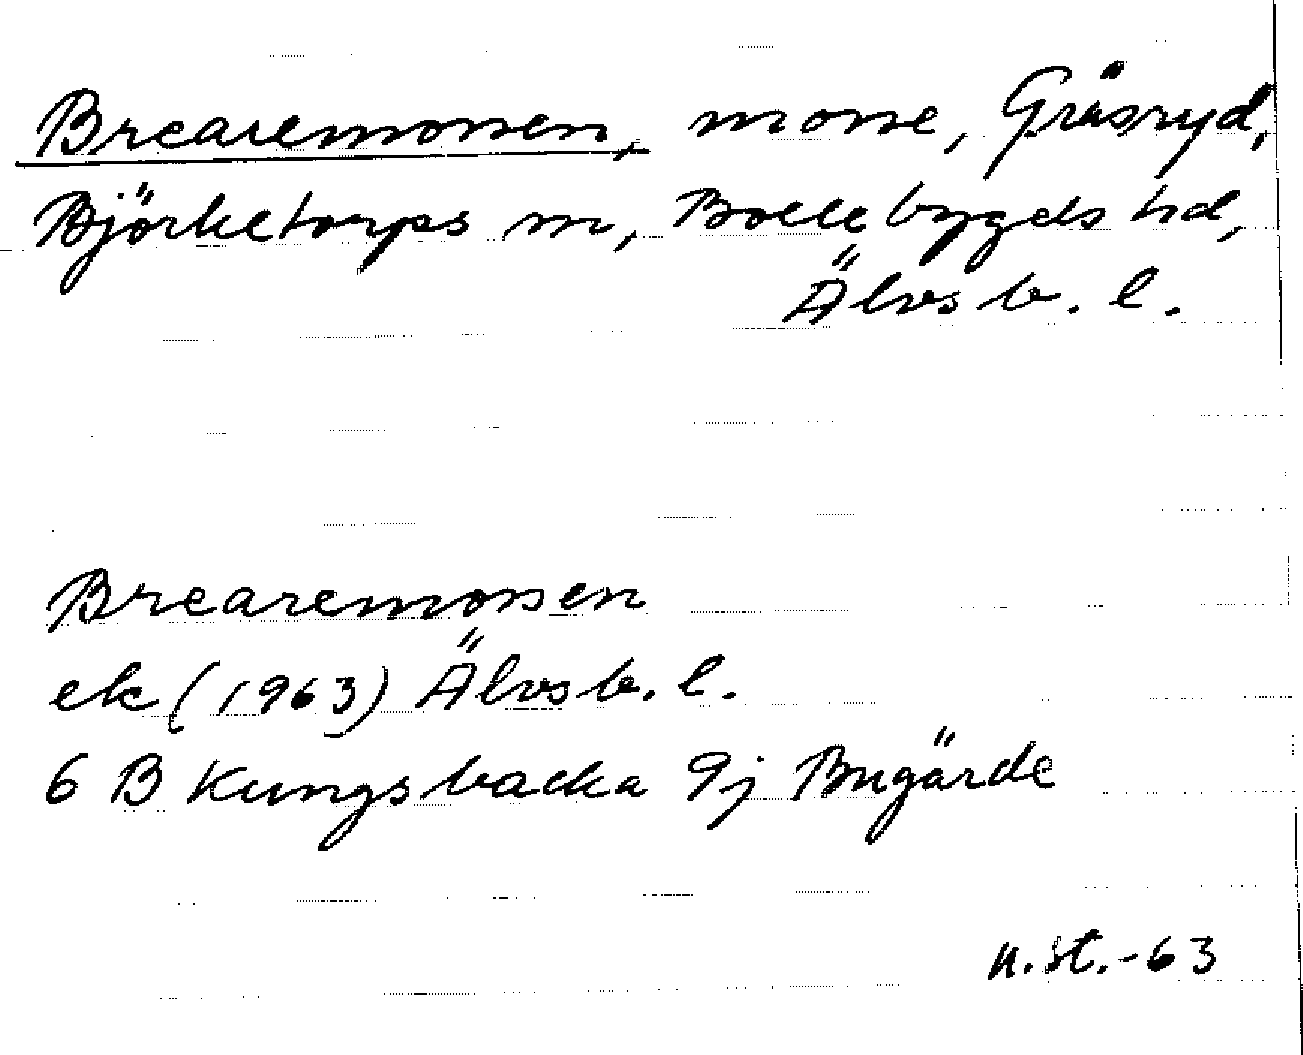 Brearemossen, mosse, Gräsryd,
Björketorps sn, Bollebygds hd,
Älvsb. l.
Brearemossen
ek (1963) Älvsb. l.
6 B Kungsbacka 9j Bugärde
n.st.-63